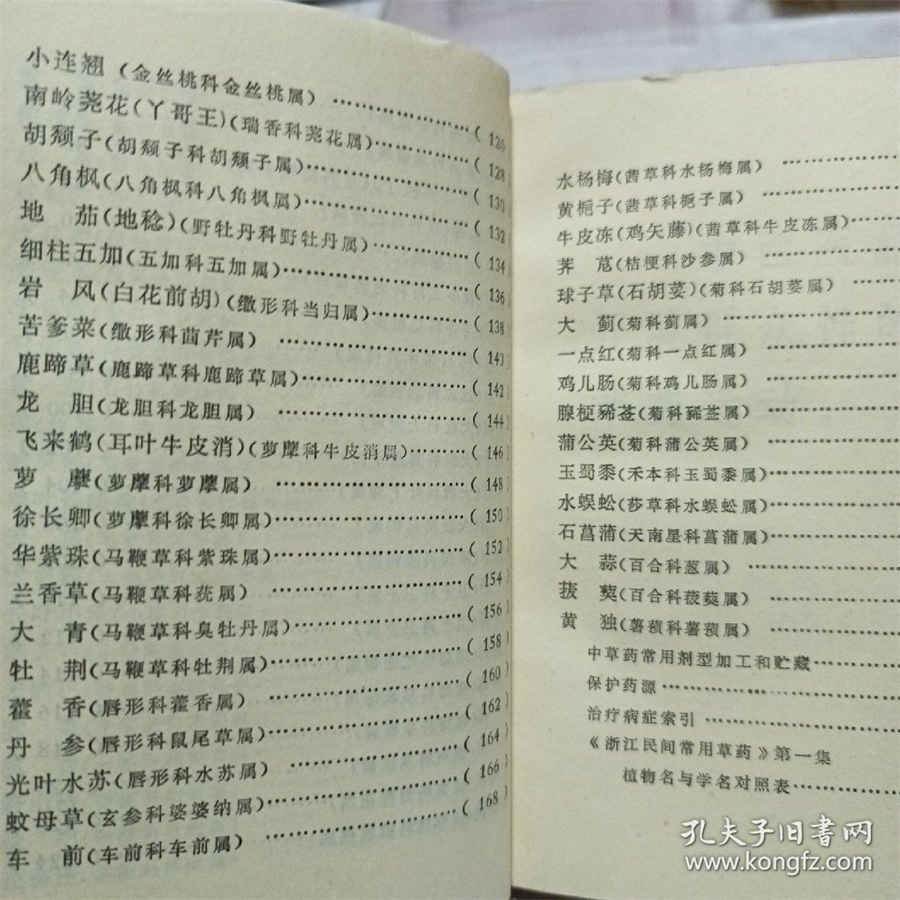 小连翘(金丝桃科金丝桃属)……………(126)
南岭荛花(丫哥王)(瑞香科荛花属)……………(128)
胡颓子(胡颓子科胡颓子属)……………(130)
八角枫(八角枫科八角枫属)……………(132)
地　茄(地稔)(野牡丹科野牡丹属)……………(134)
细柱五加(五加科五加属)……………(136)
岩　风(白花前胡)(繖形科当归属)……………(138)
苦爹菜(繖形科茴芹属)……………(141)
鹿蹄草(鹿蹄草科鹿蹄草属)……………(142)
龙　胆(龙胆科龙胆属)……………(144)
飞来鹤(耳叶牛皮消)(萝藦科牛皮消属)……………(146)
萝　藦(萝藦科萝藦属)……………(148)
徐长卿(萝藦科徐长卿属)……………(150)
华紫珠(马鞭草科紫珠属)……………(152)
兰香草(马鞭草科莸属)……………(154)
大　青(马鞭草科臭牡丹属)……………(156)
牡　荆(马鞭草科牡荆属)……………(158)
藿　香(唇形科藿香属)……………(160)
丹　参(唇形科鼠尾草属)……………(162)
光叶水苏(唇形科水苏属)……………(164)
蚊母草(玄参科婆婆纳属)……………(166)
车　前(车前科车前属)……………(168)
水杨梅(茜草科水杨梅属)……………
黄栀子(茜草科栀子属)……………
牛皮冻(鸡矢藤)(茜草科牛皮冻属)……………
荠　苨(桔梗科沙参属)……………
球子草(石胡荽)(菊科石胡荽属)……………
大　蓟(菊科蓟属)……………
一点红(菊科一点红属)……………
鸡儿肠(菊科鸡儿肠属)……………
腺梗豨莶(菊科豨莶属)……………
蒲公英(菊科蒲公英属)……………
玉蜀黍(禾本科玉蜀黍属)……………
水蜈蚣(莎草科水蜈蚣属)……………
石菖蒲(天南星科菖蒲属)……………
大　蒜(百合科葱属)……………
菝　葜(百合科菝葜属)……………
黄　独(薯蓣科薯蓣属)……………
中草药常用剂型加工和贮藏……………
保护药源……………
治疗病症索引……………
《浙江民间常用草药》第一集
植物名与学名对照表……………
孔夫子旧书网
www.kongfz.com